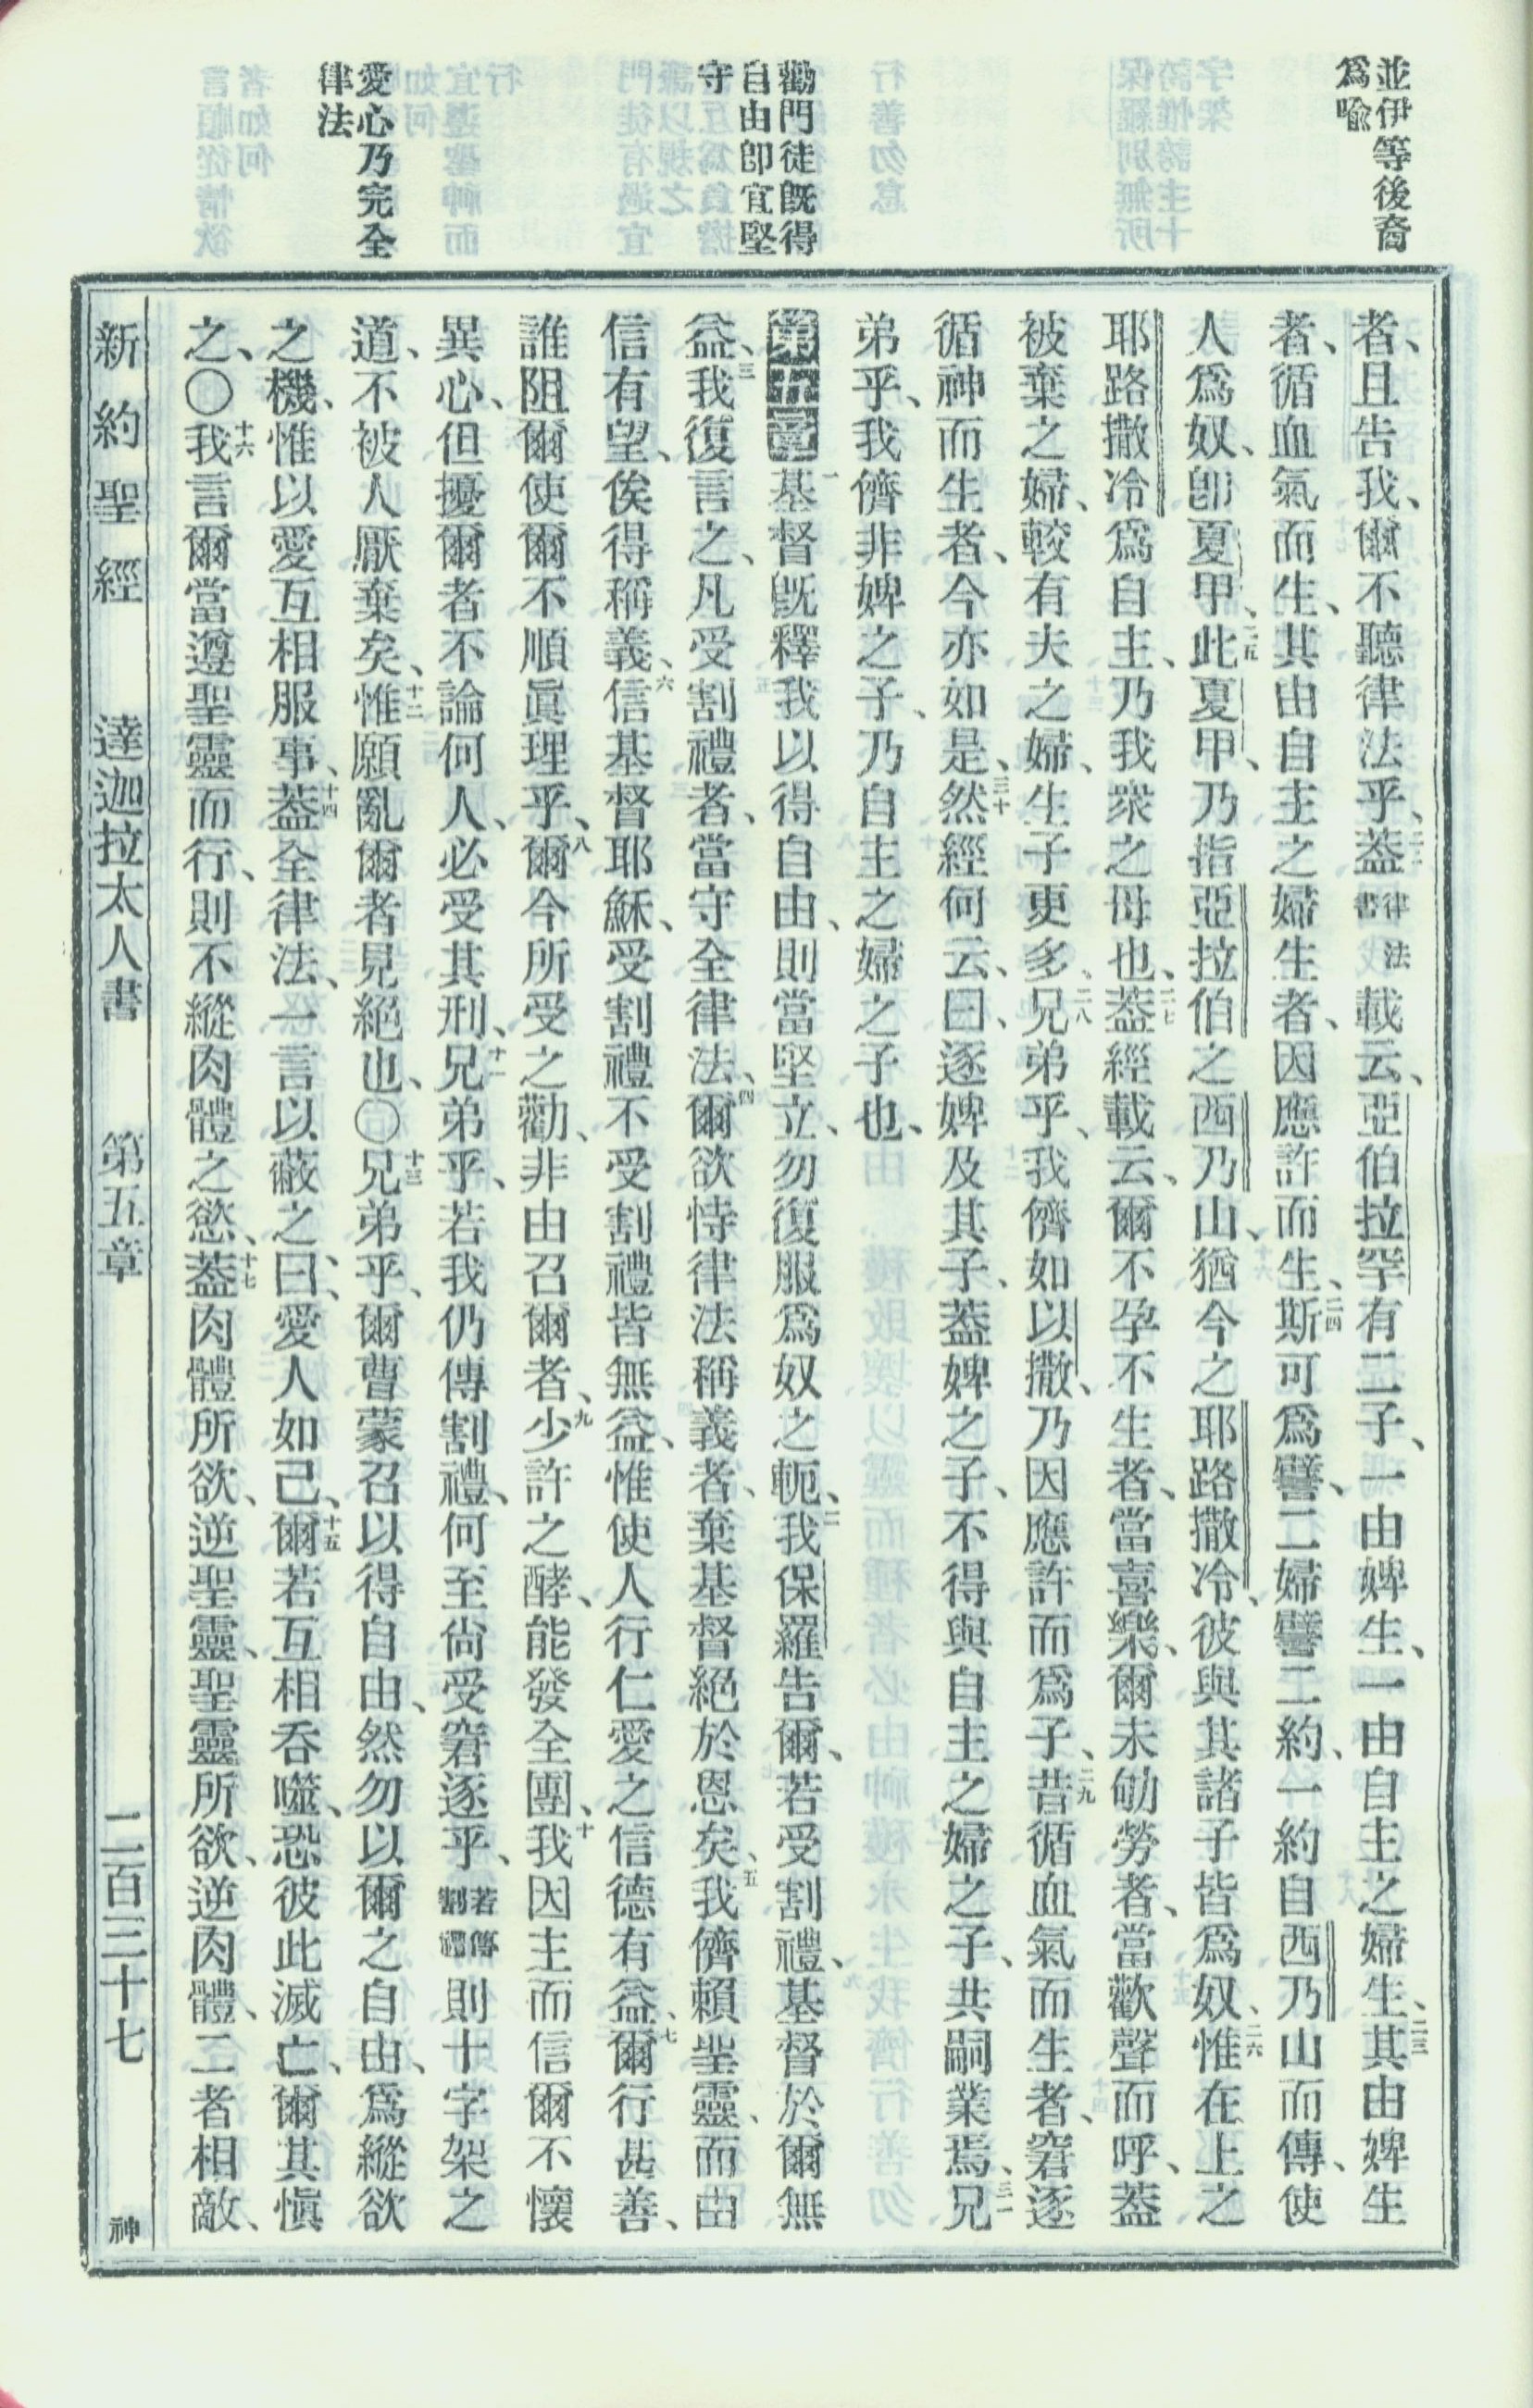 並伊等後裔
爲喩
勸門徒旣得
自由卽宜堅
守
愛心乃完全
律法
者、且告我、爾不聽律法乎、二二蓋律法書載云、亞伯拉罕有二子、一由婢生、一由自主之婦生、二三其由婢生
者、循血氣而生、其由自主之婦生者、因應許而生、二四斯可爲譬、二婦譬二約、一約自西乃山而傳、使
人爲奴、卽夏甲、二五此夏甲、乃指亞拉伯之西乃山、猶今之耶路撒冷、彼與其諸子皆爲奴、二六惟在上之
耶路撒冷爲自主、乃我衆之母也、二七蓋經載云、爾不孕不生者、當喜樂、爾未劬勞者、當歡聲而呼、蓋
被棄之婦、較有夫之婦、生子更多、二八兄弟乎、我儕如以撒、乃因應許而爲子、二九昔循血氣而生者、窘逐
循神而生者、今亦如是、三十然經何云、曰、逐婢及其子、蓋婢之子、不得與自主之婦之子、共嗣業焉、三一兄
弟乎、我儕非婢之子、乃自主之婦之子也、
第五章一基督旣釋我以得自由、則當堅立、勿復服爲奴之軛、二我保羅告爾、若受割禮、基督於爾無
益、三我復言之、凡受割禮者、當守全律法、四爾欲恃律法稱義者、棄基督絕於恩矣、五我儕賴聖靈、而由
信有望、俟得稱義、六信基督耶穌、受割禮不受割禮皆無益、惟使人行仁愛之信德有益、七爾行甚善、
誰阻爾使爾不順眞理乎、八爾今所受之勸、非由召爾者、九少許之酵、能發全團、十我因主而信爾不懷
異心、但擾爾者不論何人、必受其刑、十一兄弟乎、若我仍傳割禮、何至尙受窘逐乎、若傳割禮則十字架之
道、不被人厭棄矣、十二惟願亂爾者見絕也、〇十三兄弟乎、爾曹蒙召以得自由、然勿以爾之自由、爲縱欲
之機、惟以愛互相服事、十四蓋全律法、一言以蔽之、曰、愛人如己、十五爾若互相吞噬、恐彼此滅亡、爾其愼
之、〇十六我言爾當遵聖靈而行、則不縱肉體之慾、十七蓋肉體所欲、逆聖靈、聖靈所欲、逆肉體、二者相敵、
新約聖經　達迦拉太人書　第五章　二百三十七　神